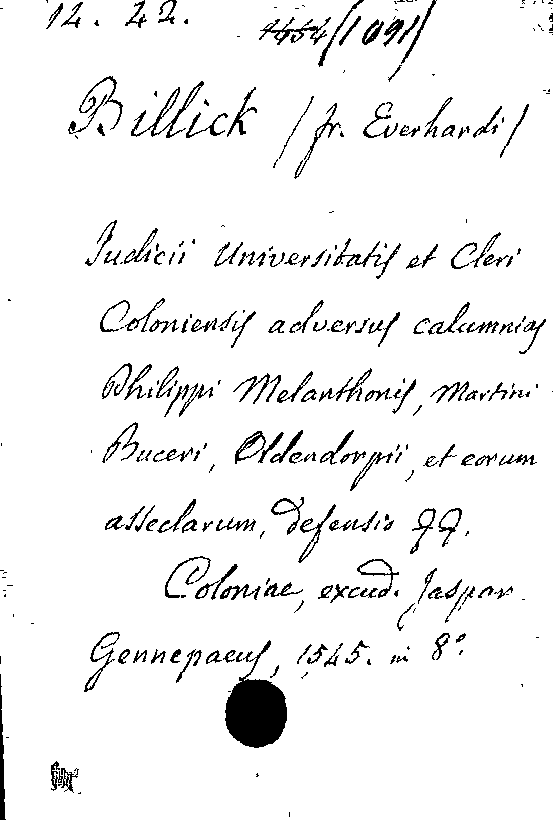 12. 22. 1454 (1091)
Billick / fr. Everhardi /
Judicii Universitatis et Cleri
Coloniensis adversus calumnias
Philippi Melanthonis, Martini
Buceri, Oldendorpii, et eorum
asseclarum, defensio
Coloniae, excud. Jaspar
Gennepaeus, 1545. in 8°.